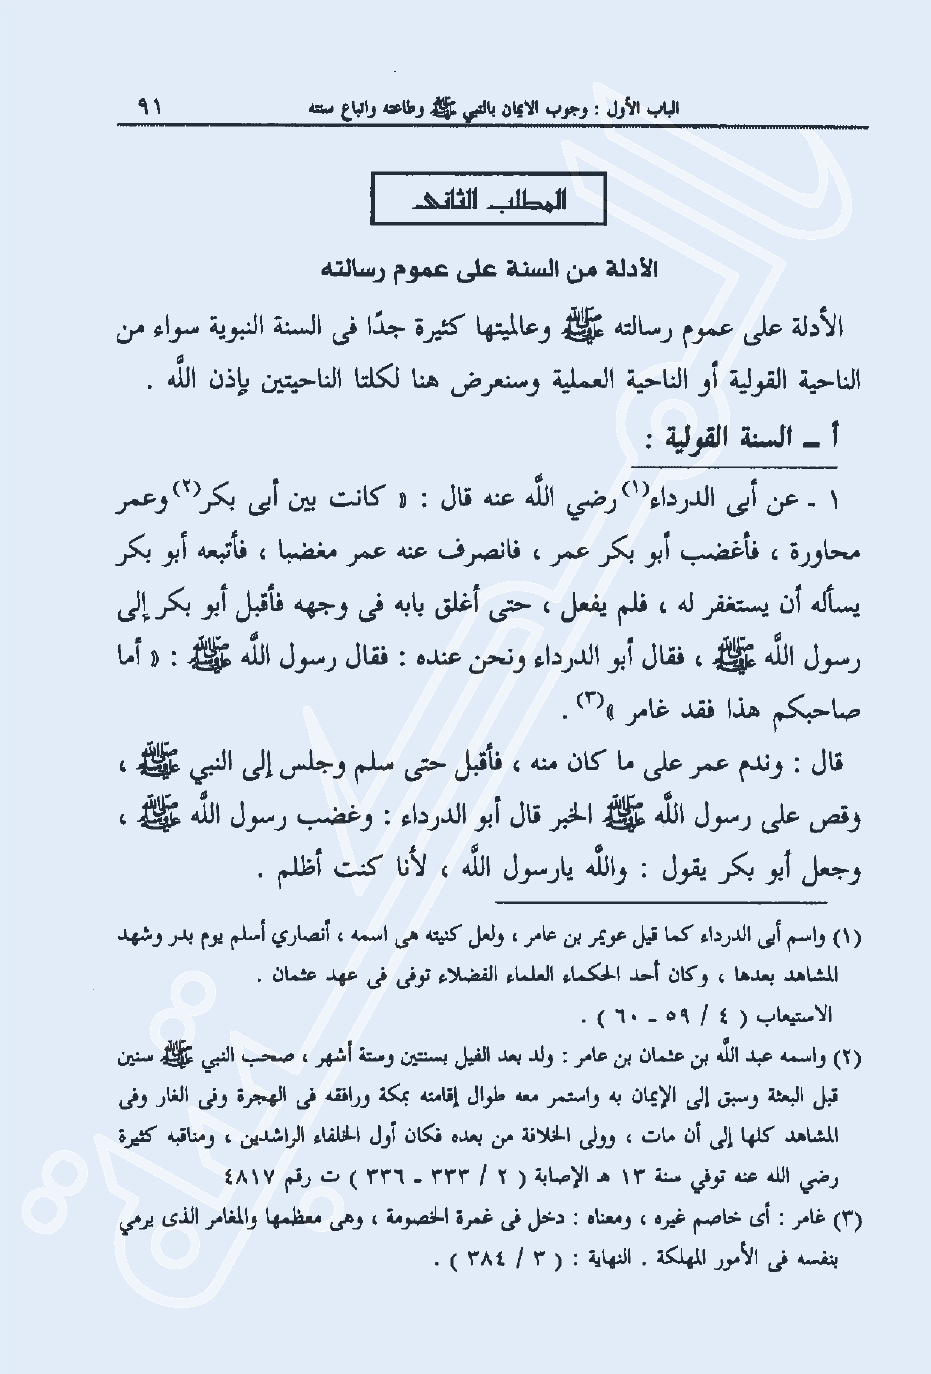 الباب الأول : وجوب الايمان بالنبي ﷺ وطاعته واتباع سنته ٩١
المطلب الثانى
الأدلة من السنة على عموم رسالته
الأدلة على عموم رسالته ﷺ وعالميتها كثيرة جدًا فى السنة النبوية سواء من
الناحية القولية أو الناحية العملية وسنعرض هنا لكلتا الناحيتين بإذن اللَّه .
أ ـ السنة القولية :
١ ـ عن أبى الدرداء(١) رضي اللَّه عنه قال : « كانت بين أبى بكر(٢) وعمر
محاورة ، فأغضب أبو بكر عمر ، فانصرف عنه عمر مغضبا ، فأتبعه أبو بكر
يسأله أن يستغفر له ، فلم يفعل ، حتى أغلق بابه فى وجهه فأقبل أبو بكر إلى
رسول اللَّه ﷺ ، فقال أبو الدرداء ونحن عنده : فقال رسول اللَّه ﷺ : « أما
صاحبكم هذا فقد غامر »(٣) .
قال : وندم عمر على ما كان منه ، فأقبل حتى سلم وجلس إلى النبي ﷺ ،
وقص على رسول اللَّه ﷺ الخبر قال أبو الدرداء : وغضب رسول اللَّه ﷺ ،
وجعل أبو بكر يقول : واللَّه يارسول اللَّه ، لأنا كنت أظلم .
(١) واسم أبى الدرداء كما قيل عويمر بن عامر ، ولعل كنيته هى اسمه ، أنصاري أسلم يوم بدر وشهد
المشاهد بعدها ، وكان أحد الحكماء العلماء الفضلاء توفى فى عهد عثمان .
الاستيعاب ( ٤ / ٥٩ ـ ٦٠ ) .
(٢) واسمه عبد اللَّه بن عثمان بن عامر : ولد بعد الفيل بسنتين وستة أشهر ، صحب النبي ﷺ سنين
قبل البعثة وسبق إلى الإيمان به واستمر معه طوال إقامته بمكة ورافقه فى الهجرة وفى الغار وفى
المشاهد كلها إلى أن مات ، وولى الخلافة من بعده فكان أول الخلفاء الراشدين ، ومناقبه كثيرة
رضي الله عنه توفي سنة ١٣ هـ الإصابة ( ٢ / ٣٣٣ ـ ٣٣٦ ) ت رقم ٤٨١٧
(٣) غامر : أى خاصم غيره ، ومعناه : دخل فى غمرة الخصومة ، وهى معظمها والمغامر الذى يرمي
بنفسه فى الأمور المهلكة . النهاية : ( ٣ / ٣٨٤ ) .